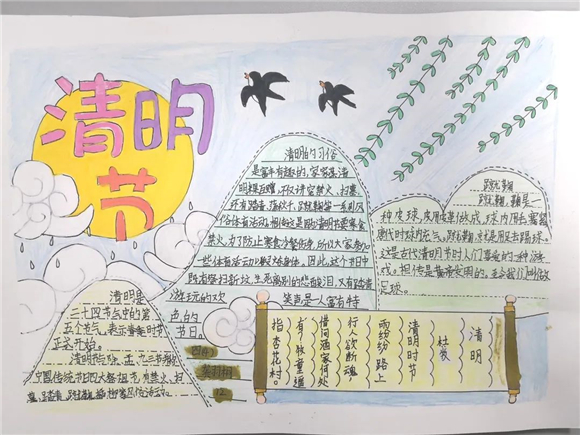 清明节
清明的习俗
是富有趣的,家家是清
明提五嘴,不仅讲究禁火、扫墓
还有踏青、荡秋千、蹴鞠
俗体育活动,相传这是因清明节要寒食
禁火,为了防止寒食冷餐伤身,所以大家参加
一些体育活动,以锻炼身体。因此,这个节日中
既有祭扫新坟,生死离别的悲酸泪,又有踏青
游玩的欢
笑声是一个富有特
色的
节日。
蹴鞠
蹴鞠,鞠是一
种皮球,球皮用皮革做成,球内用毛塞紧
唐代时球内充气,蹴鞠,就是用足去踢球。
这是古代清明节时人们喜爱的一种游
戏。相传是黄帝发明的,
足球。
清明是
二十四节气中的第
五个节气,表示春季时节
正适开始。
清明节与除、盂、九三节
中国传统节日四大祭祖节,有禁火、扫
墓、踏青、蹴鞠、插柳等风俗活动。
四(4)
12
清明
杜牧
清明时节
雨纷纷路上
行人欲断魂,
借问酒家何处
有,牧童遥
指杏花村。